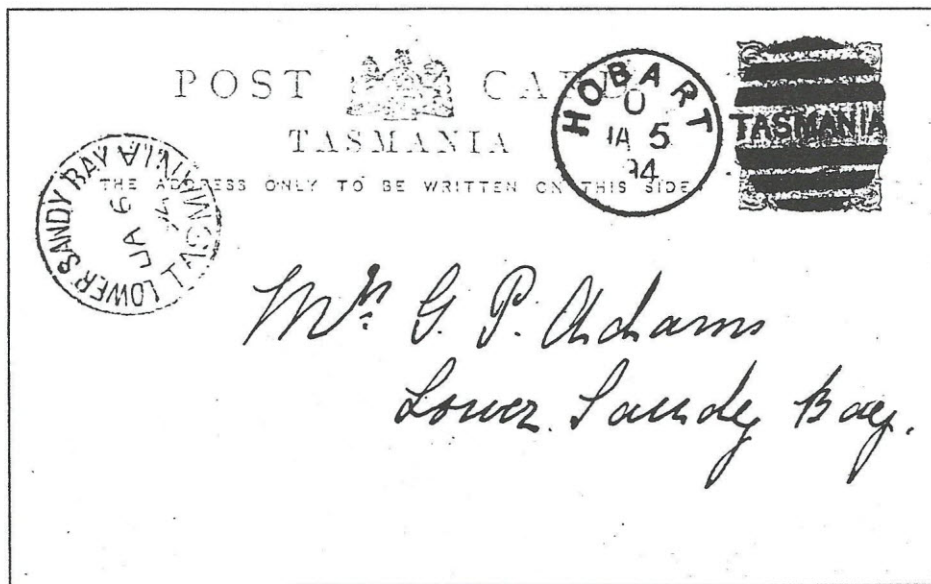 POST CARD
TASMANIA
THE ADDRESS ONLY TO BE WRITTEN ON THIS SIDE
HOBART
O
JA 5
94
TASMANIA
LOWER SANDY BAY
JA 6
94
TASMANIA
Mrs G. P. Adams
Lower Sandy Bay.